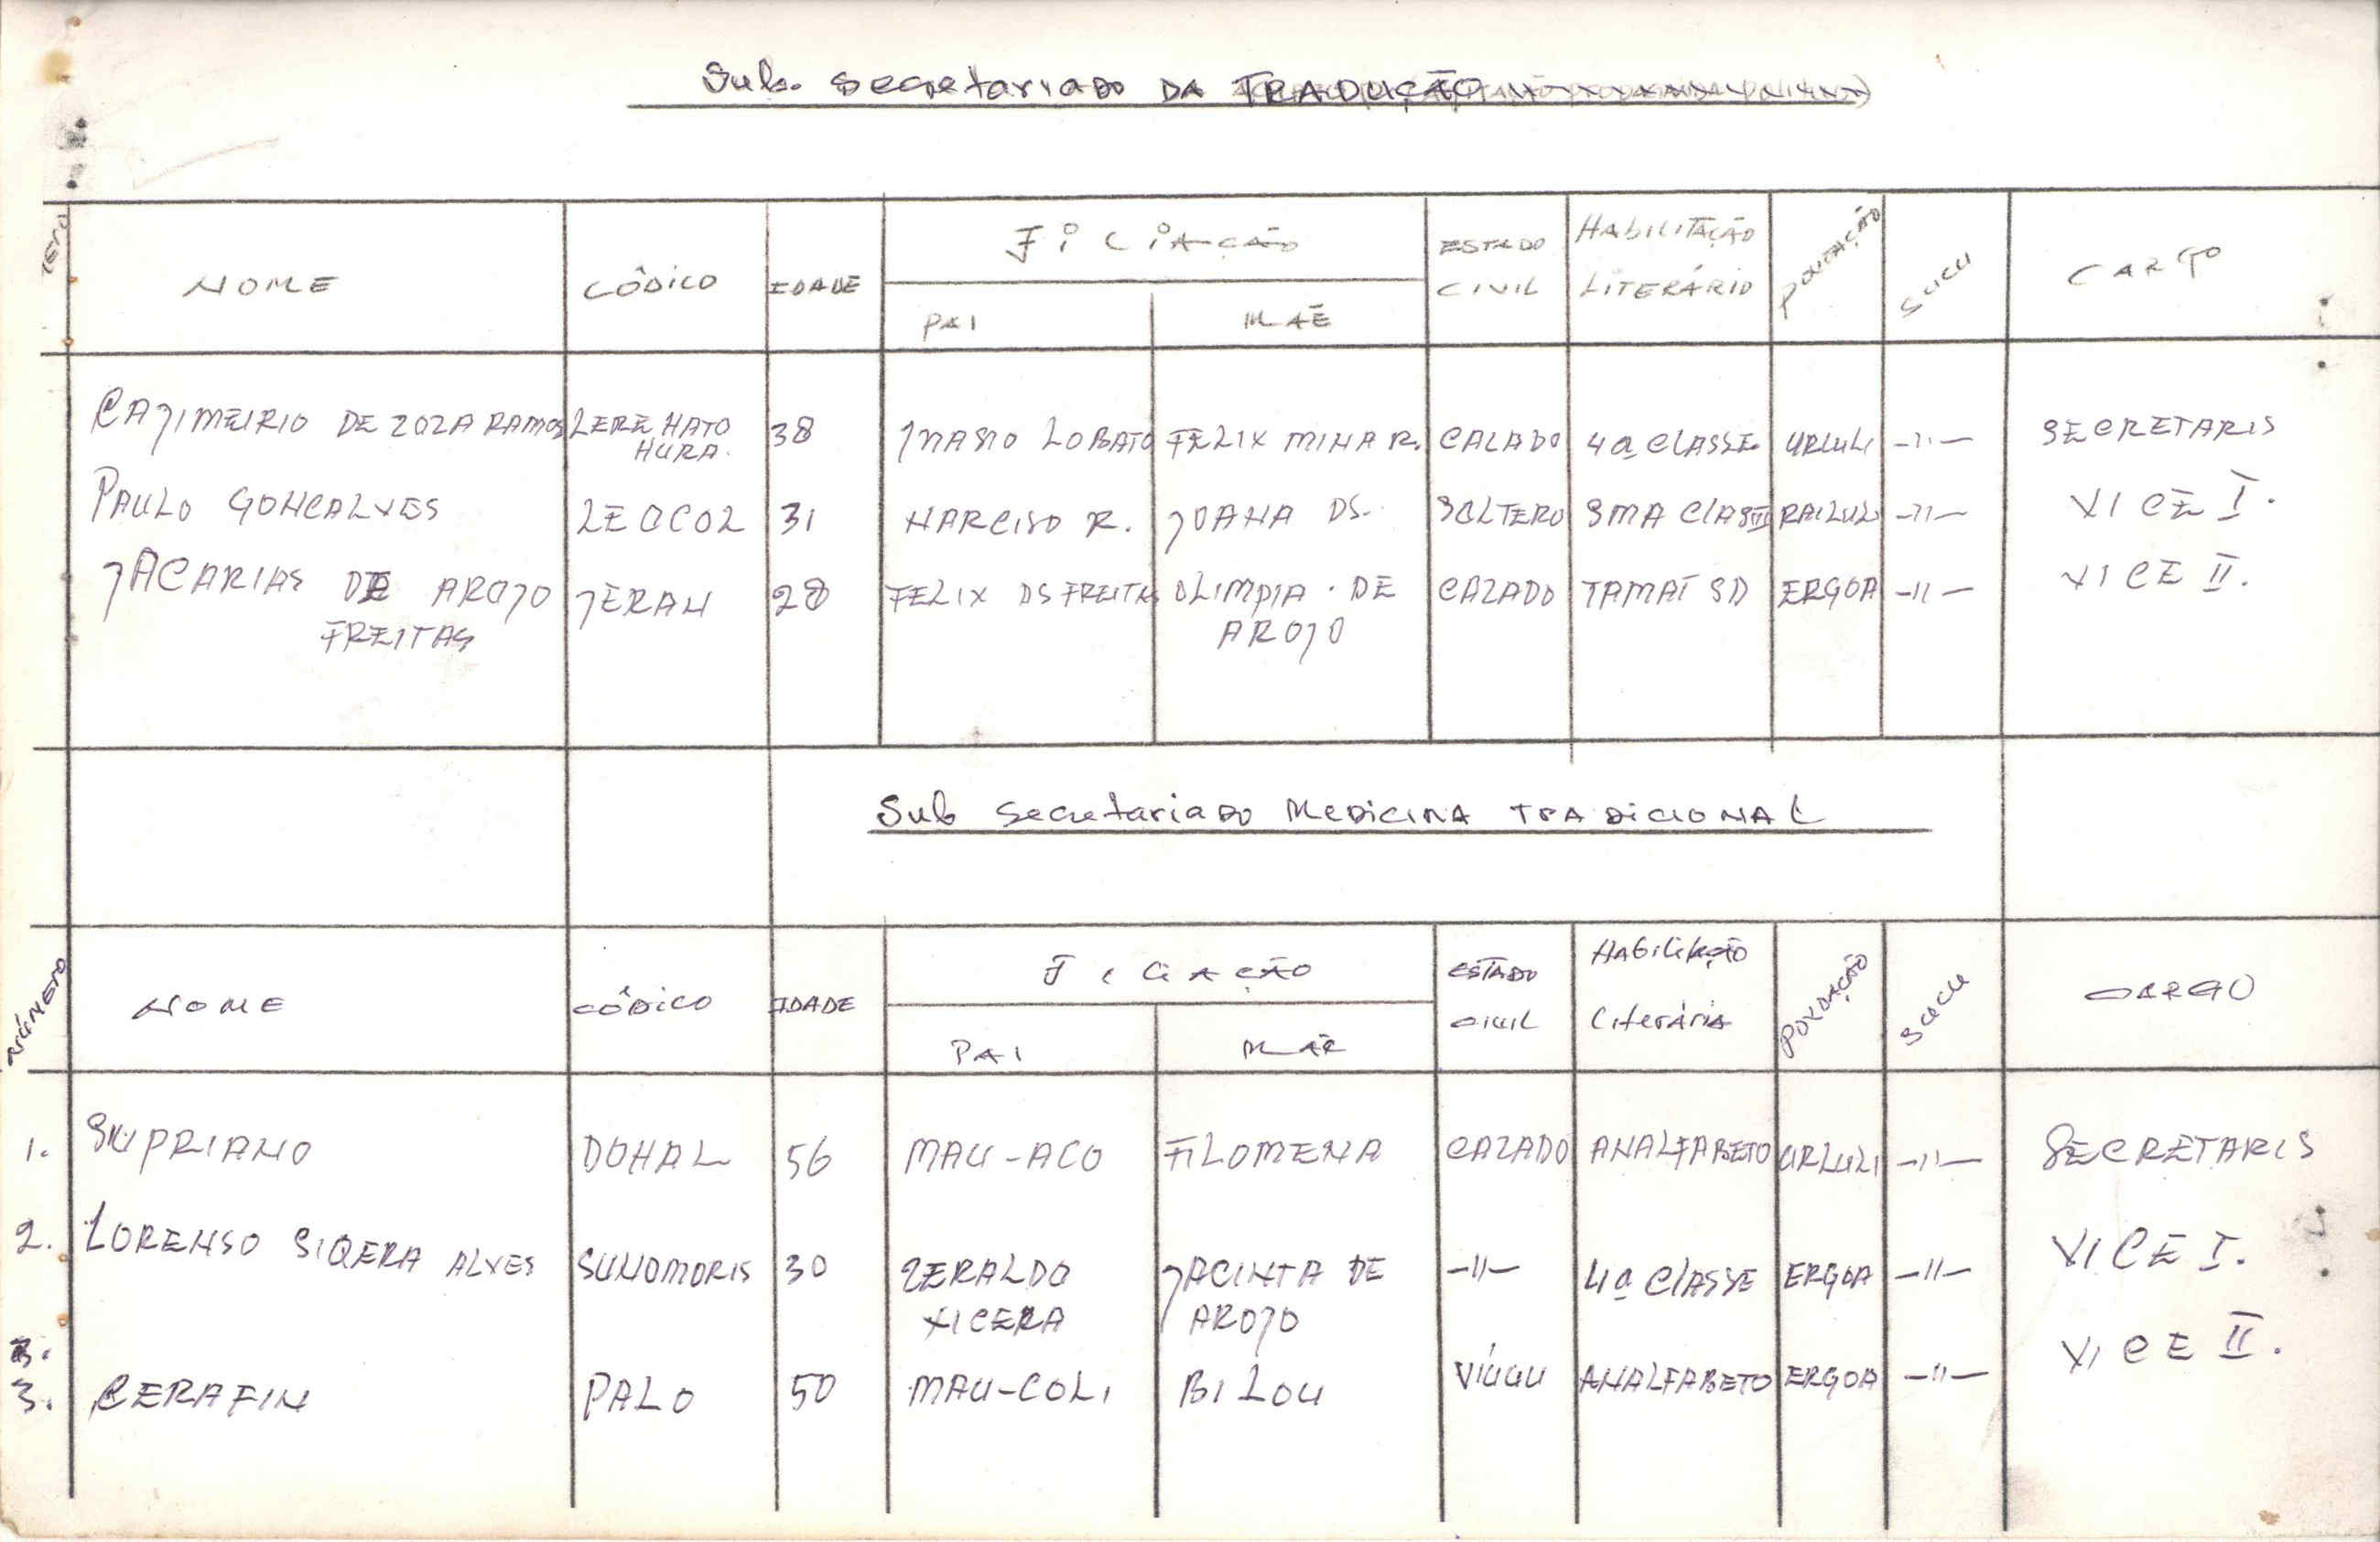 Sub. Secretariado DA TRADUÇÃO
NOME CÔDICO IDADE FILIAÇÃO ESTADO CIVIL HABILITAÇÃO LITERÁRIO POVOAÇÃO SUCU CARGO
PAI MÃE
CAJIMEIRIO DE ZOZA RAMOS LERE HATO 38 INASIO LOBATO FELIX MINA R. CAZADO 4a CLASSE URLULI -"- SECRETARIS
HURA.
PAULO GONCALVES LEOCOL 31 NARCISO R. JOANA DS. SOLTERO SMA CLASSE RAILULI -"- VICE I.
JACARIAS DE AROJO JERAN 28 FELIX DS FREITAS OLIMPIA. DE CAZADO TAMAT SD ERGOA -"- VICE II.
FREITAS AROJO
Sub Secretariado Medicina TRADICIONAL
NÚMERO NOME CÔDICO IDADE FILIAÇÃO ESTADO CIVIL Habilitação Literária POVOAÇÃO SUCU CARGO
PAI MÃE
1. SUPRIANO DOHAL 56 MAU-ACO FILOMENA CAZADO ANALFABETO URLULI -"- SECRETARIS
2. LORENSO SIQERA ALVES SUNOMORIS 30 ZERALDO JACINTA DE -"- 4a CLASSE ERGOA -"- VICE I.
XICERA AROJO
3. CERAFIN PALO 50 MAU-COLI BILOU VÍUUU ANALFABETO ERGOA -"- VICE II.